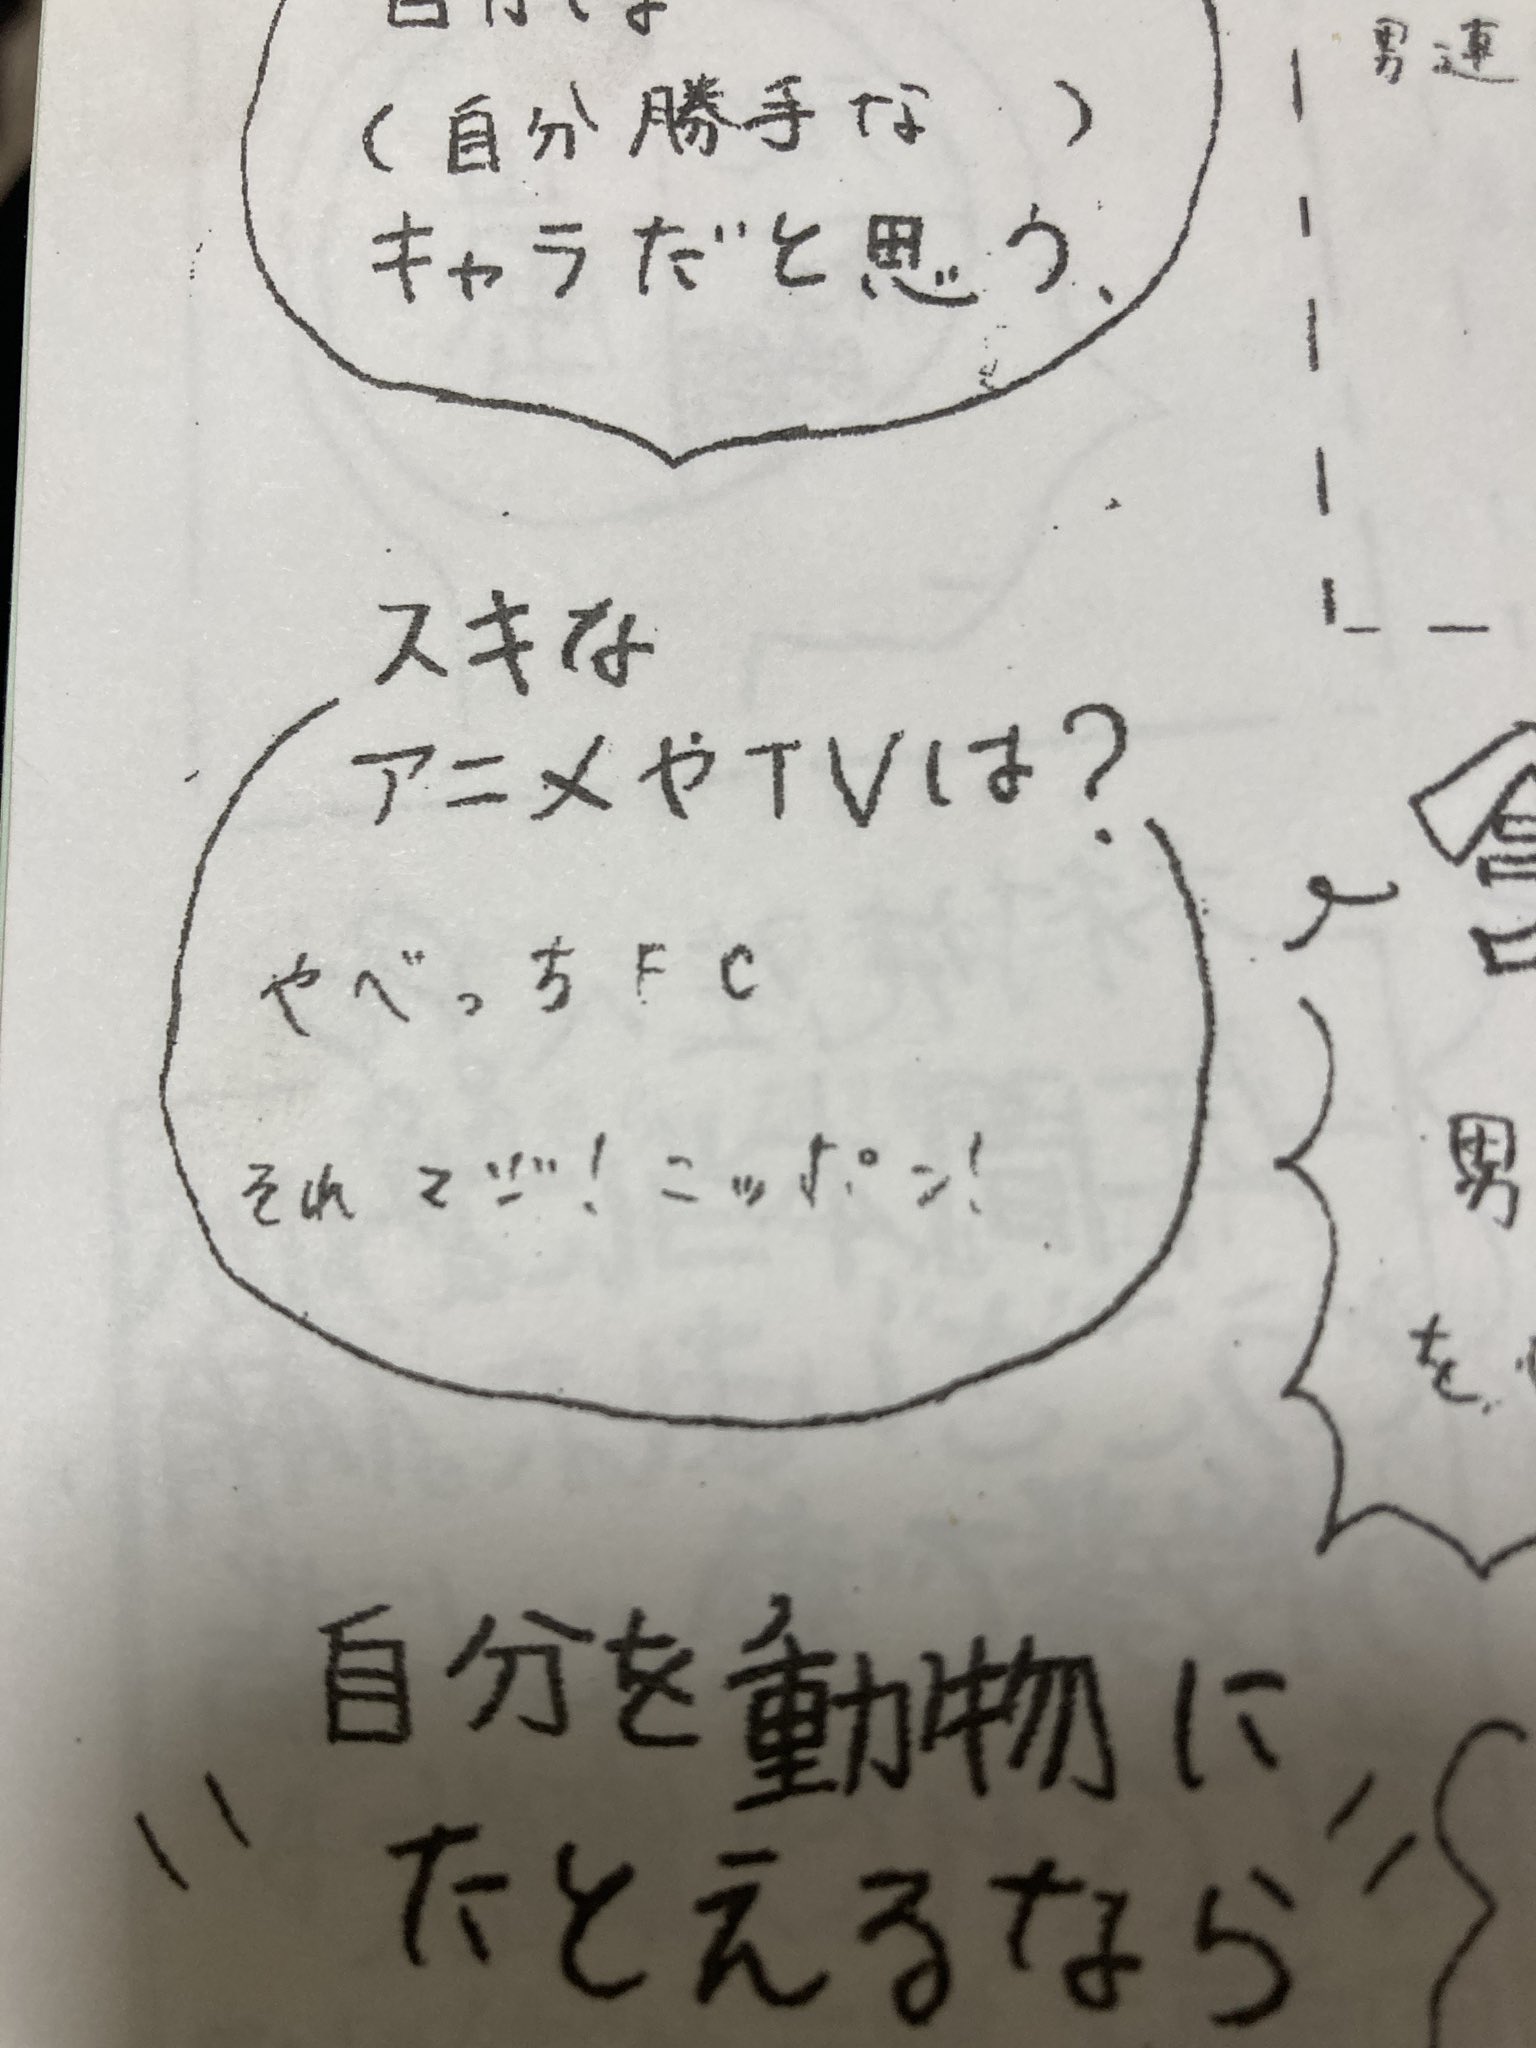 自分は
(自分勝手な )
キャラだと思う、
男連
スキな
アニメやTVは?
やべっちFC
それマジ!ニッポン!
男
を
自分を動物に
たとえるなら